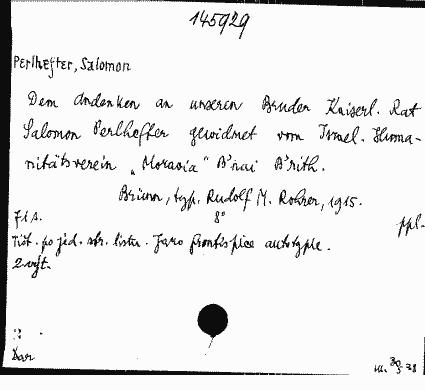 145929
Perlhefter, Salomon
Dem Andenken an unseren Bruder Kaiserl. Rat
Salomon Perlhefter gewidmet vom Israel. Huma-
nitätsverein „Moravia" B'nai B'rith.
Brünn, typ. Rudolf M. Rohrer, 1915.
8° ppl.
Tišt. po jed. str. listu. Jako frontispice autotypie.
2 výt.
Dar